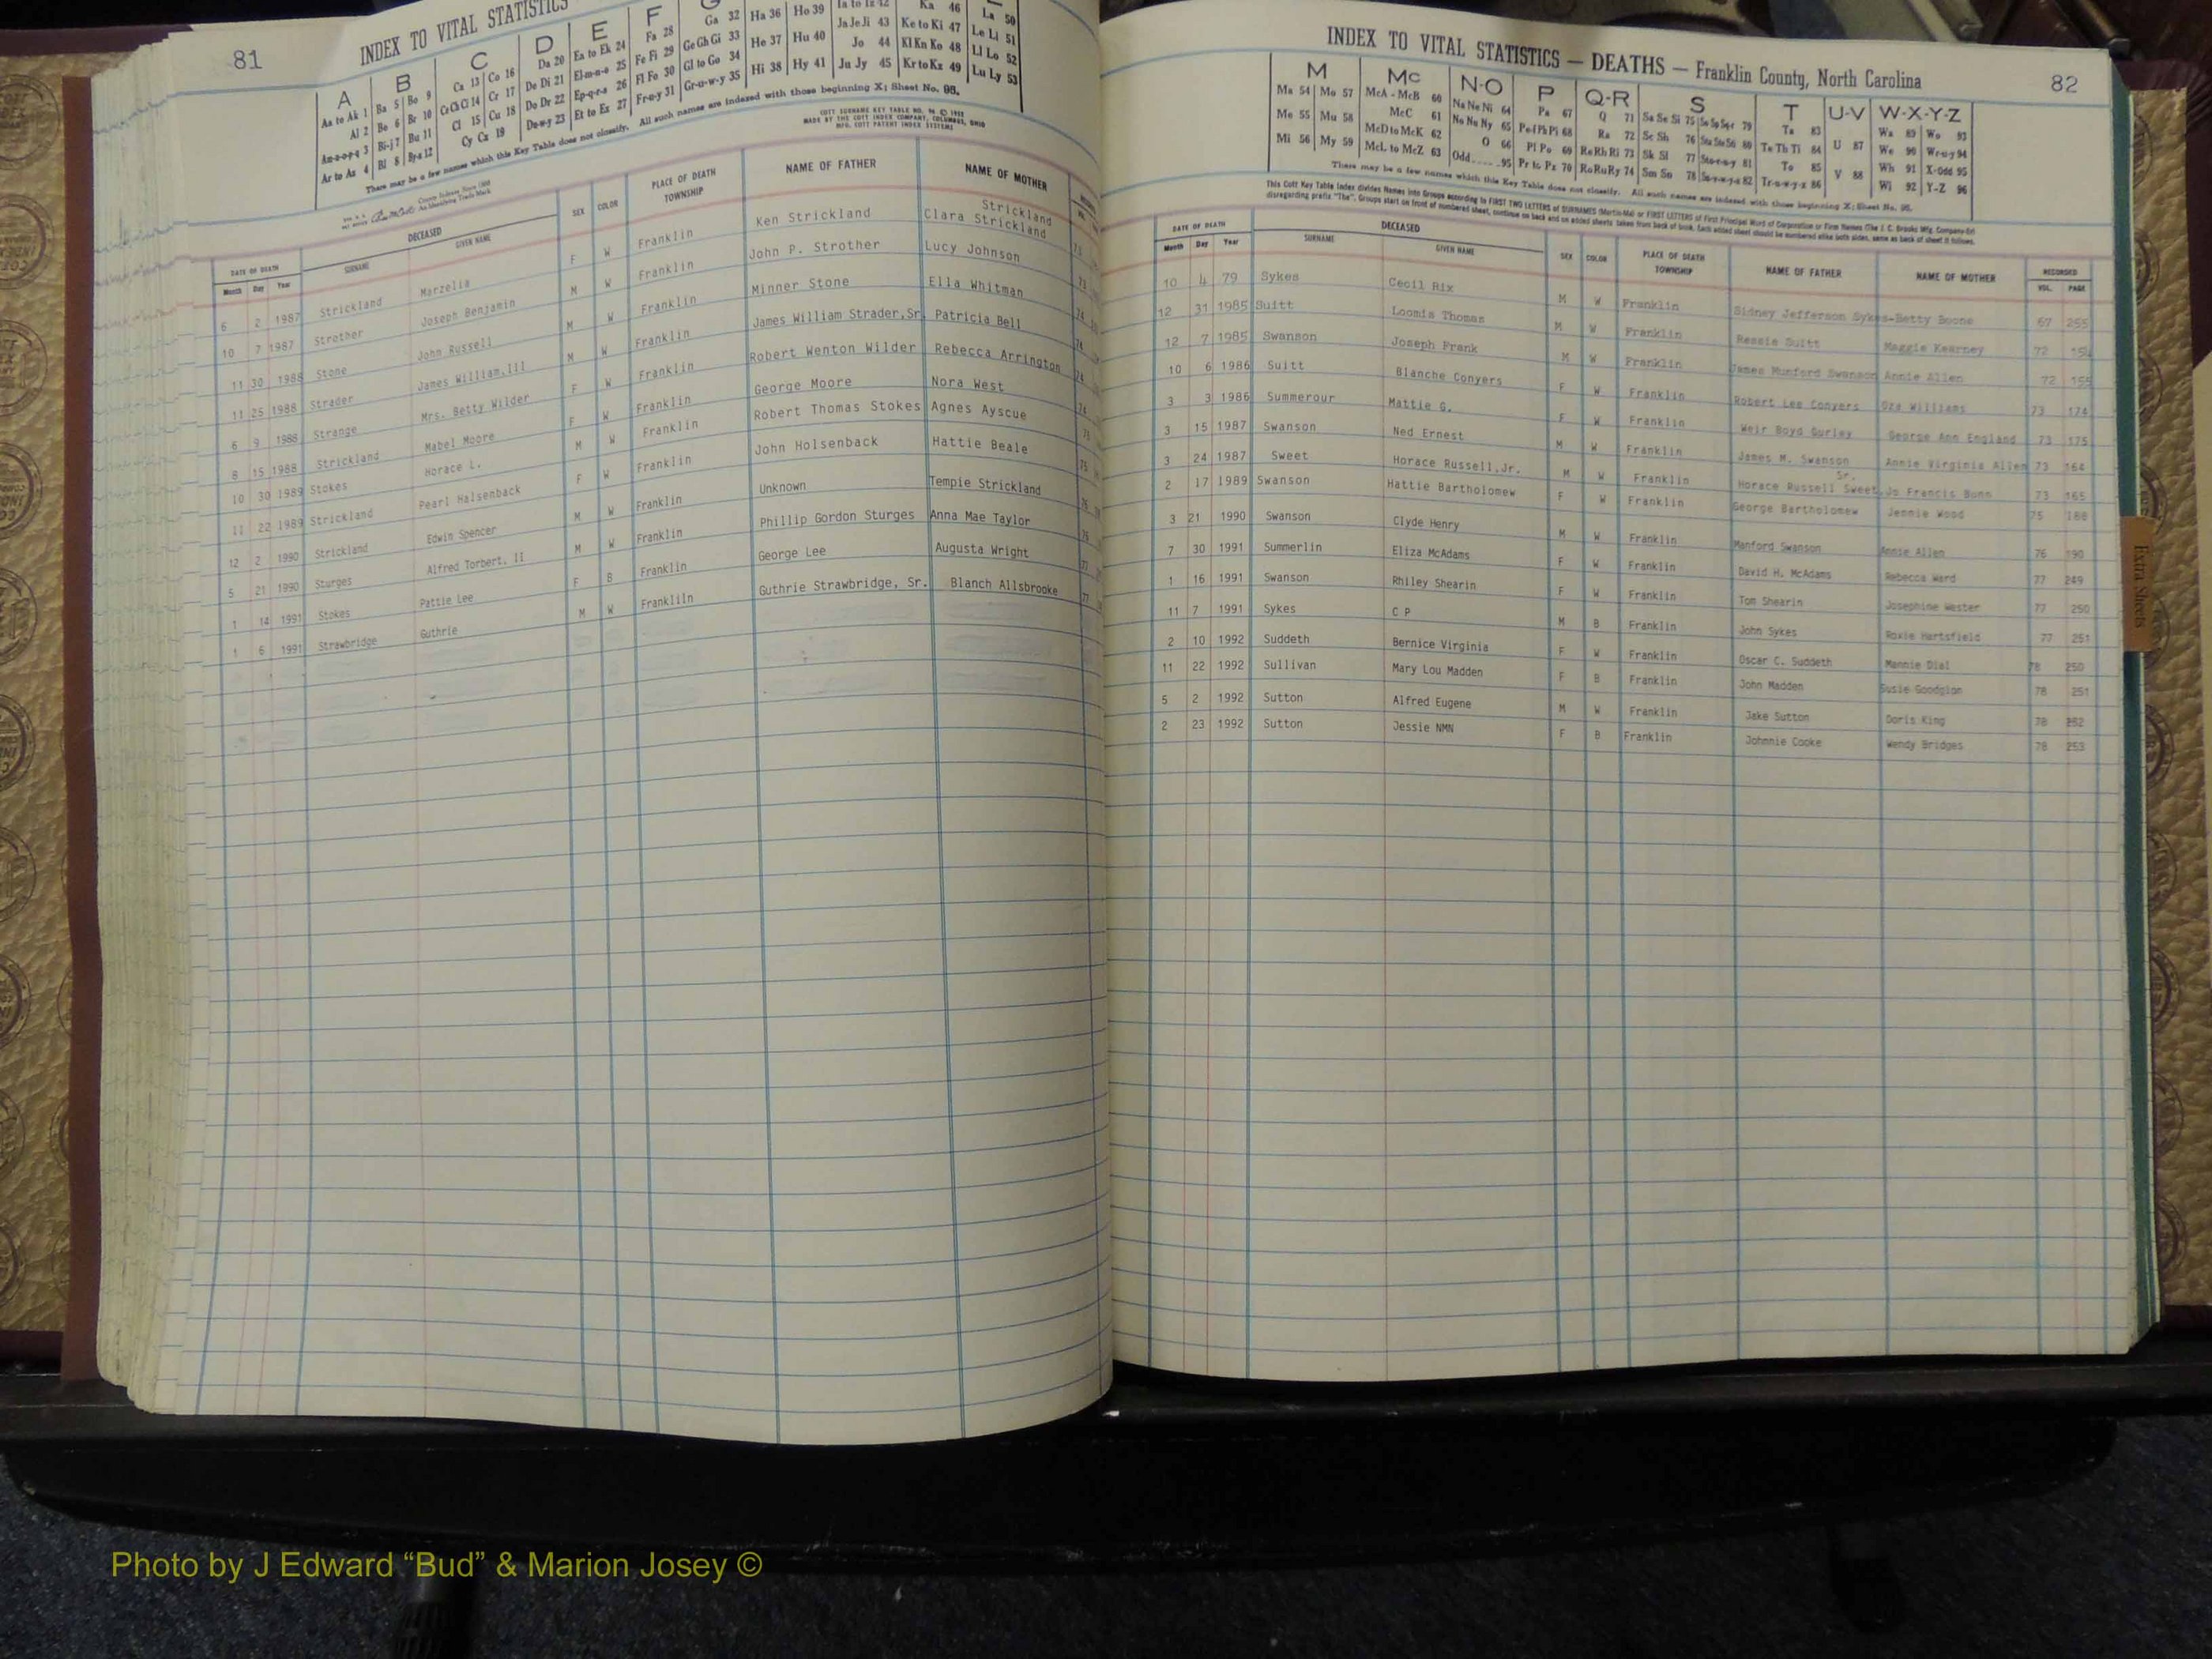 81
INDEX TO VITAL STATISTICS
A B C D E F
Aa to Ak 1 Ba 5 Bo 9 Ca 13 Co 16 Da 20 Ea to Ek 24 Fa 28 Ga 32 Ha 36 Ho 39 Ia to Iz 42 Ka 46 La 50
Al 2 Be 6 Br 10 Ce Ch Ci 14 Cr 17 De Di 21 El-m-n-o 25 Fe Fi 29 Ge Gh Gi 33 He 37 Hu 40 Ja Je Ji 43 Ke to Ki 47 Le Li 51
Am-n-o-p-q 3 Bi-j 7 Bu 11 Cl 15 Cu 18 Do Dr 22 Ep-q-r-s 26 Fl Fo 30 Gl to Go 34 Hi 38 Hy 41 Jo 44 Kl Kn Ko 48 Ll Lo 52
Ar to Az 4 Bl 8 By-z 12 Cy Cz 19 Du-w-y 23 Et to Ez 27 Fr-u-y 31 Gr-u-w-y 35 Ju Jy 45 Kr to Kz 49 Lu Ly 53
There may be a few names which this Key Table does not classify. All such names are indexed with those beginning X; Sheet No. 95.
COTT SURNAME KEY TABLE NO. 96 © 1952
MADE BY THE COTT INDEX COMPANY, COLUMBUS, OHIO
MFG. COTT PATENT INDEX SYSTEMS
DATE OF DEATH DECEASED SEX COLOR PLACE OF DEATH TOWNSHIP NAME OF FATHER NAME OF MOTHER
Month Day Year SURNAME GIVEN NAME
6 2 1987 Strickland Marzelia F W Franklin Ken Strickland Clara Strickland Strickland
10 7 1987 Strother Joseph Benjamin M W Franklin John P. Strother Lucy Johnson
11 30 1988 Stone John Russell M W Franklin Minner Stone Ella Whitman
11 25 1988 Strader James William,III M W Franklin James William Strader,Sr. Patricia Bell
6 9 1988 Strange Mrs. Betty Wilder F W Franklin Robert Wenton Wilder Rebecca Arrington
8 15 1988 Strickland Mabel Moore F W Franklin George Moore Nora West
10 30 1989 Stokes Horace L. M W Franklin Robert Thomas Stokes Agnes Ayscue
11 22 1989 Strickland Pearl Halsenback F W Franklin John Holsenback Hattie Beale
12 2 1990 Strickland Edwin Spencer M W Franklin Unknown Tempie Strickland
5 21 1990 Sturges Alfred Torbert, II M W Franklin Phillip Gordon Sturges Anna Mae Taylor
1 14 1991 Stokes Pattie Lee F B Franklin George Lee Augusta Wright
1 6 1991 Strawbridge Guthrie M W Frankliln Guthrie Strawbridge, Sr. Blanch Allsbrooke
INDEX TO VITAL STATISTICS — DEATHS — Franklin County, North Carolina
82
M Mc N-O P Q-R S T U-V W-X-Y-Z
Ma 54 Mo 57 McA - McB 60 Na Ne Ni 64 Pa 67 Q 71 Sa Se Si 75 79 Ta 83 U 87 Wa 89 Wo 93
Me 55 Mu 58 McC 61 No Nu Ny 65 Pe Pf Ph Pi 68 Ra 72 Sc Sh 76 80 Te Th Ti 84 V 88 We 90 Wr-u-y 94
Mi 56 My 59 McD to McK 62 O 66 Pl Po 69 Re Rh Ri 73 Sk Sl 77 81 To 85 Wh 91 X-Odd 95
McL to McZ 63 Odd 95 Pr to Pz 70 Ro Ru Ry 74 Sm Sn 78 82 Tr-u-w-y-z 86 Wi 92 Y-Z 96
There may be a few names which this Key Table does not classify. All such names are indexed with those beginning X; Sheet No. 95.
This Cott Key Table Index divides Names into Groups according to FIRST TWO LETTERS of SURNAMES (Martin-Ma) or FIRST LETTERS of First Principal Word of Corporation or Firm Names (The J. C. Brooks Mfg. Company-Br)
disregarding prefix "The". Groups start on front of numbered sheet, continue on back and on added sheets taken from back of book. Each added sheet should be numbered alike both sides, same as back of sheet it follows.
DATE OF DEATH DECEASED SEX COLOR PLACE OF DEATH TOWNSHIP NAME OF FATHER NAME OF MOTHER RECORDED
Month Day Year SURNAME GIVEN NAME VOL. PAGE
10 4 79 Sykes Cecil Rix M W Franklin Sidney Jefferson Sykes-Betty Boone 67 255
12 31 1985 Suitt Loomis Thomas M W Franklin Ressie Suitt Maggie Kearney 72 154
12 7 1985 Swanson Joseph Frank M W Franklin James Munford Swanson Annie Allen 72 155
10 6 1986 Suitt Blanche Conyers F W Franklin Robert Lee Conyers Oza Williams 73 174
3 3 1986 Summerour Mattie G. F W Franklin Weir Boyd Gurley George Ann England 73 175
3 15 1987 Swanson Ned Ernest M W Franklin James M. Swanson Annie Virginia Allen 73 164
3 24 1987 Sweet Horace Russell,Jr. M W Franklin Horace Russell Sweet, Sr. Jo Francis Bunn 73 165
2 17 1989 Swanson Hattie Bartholomew F W Franklin George Bartholomew Jennie Wood 75 188
3 21 1990 Swanson Clyde Henry M W Franklin Manford Swanson Annie Allen 76 190
7 30 1991 Summerlin Eliza McAdams F W Franklin David H. McAdams Rebecca Ward 77 249
1 16 1991 Swanson Rhiley Shearin F W Franklin Tom Shearin Josephine Wester 77 250
11 7 1991 Sykes C P M B Franklin John Sykes Roxie Hartsfield 77 251
2 10 1992 Suddeth Bernice Virginia F W Franklin Oscar C. Suddeth Mannie Dial 78 250
11 22 1992 Sullivan Mary Lou Madden F B Franklin John Madden Susie Goodgion 78 251
5 2 1992 Sutton Alfred Eugene M W Franklin Jake Sutton Doris King 78 252
2 23 1992 Sutton Jessie NMN F B Franklin Johnnie Cooke Wendy Bridges 78 253
Extra Sheets
Photo by J Edward “Bud” & Marion Josey ©